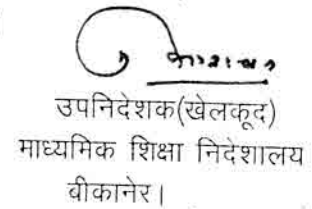 उपनिदेशक(खेलकूद)
माध्यमिक शिक्षा निदेशालय
बीकानेर।